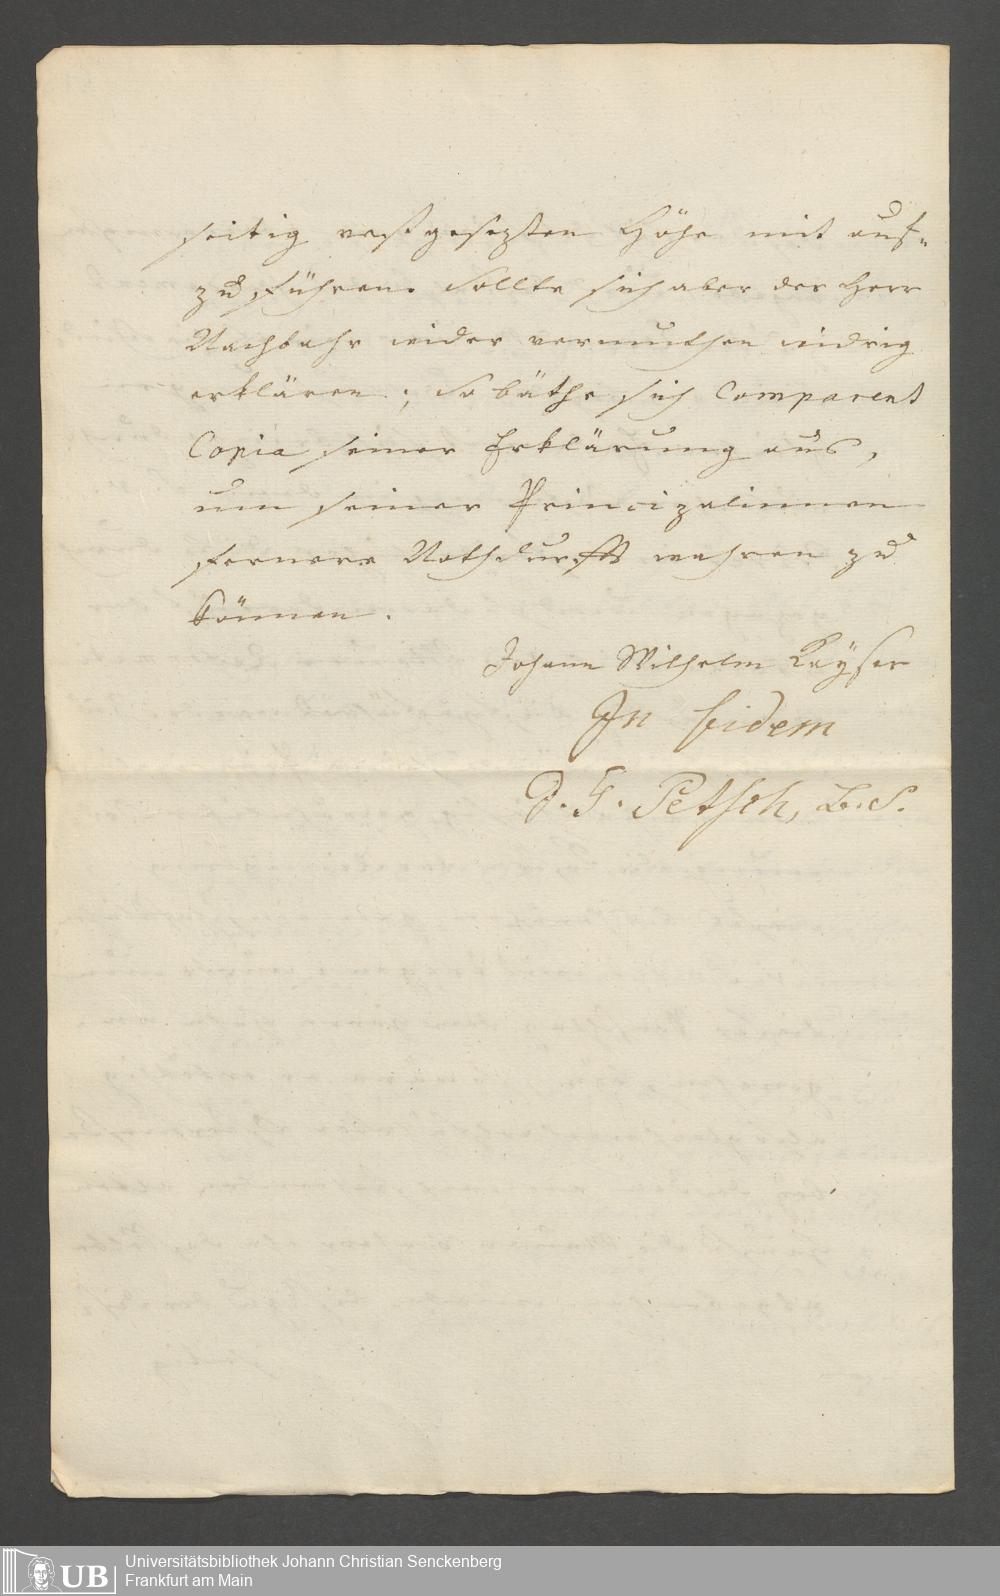 seitig vest gesezten Höhe mit auf-
zu führen. Sollte sich aber der Herr
Nachbahr wider vermuthen widrig
erklären; So bäthe sich Comparent
Copia seiner Erklärung aus,
um seiner Principalinnen
fernere Nothdurfft wahren zu
können.
Johann Wilhelm Kayser
In fidem
J. G. Petsch, L. S.
Universitätsbibliothek Johann Christian Senckenberg
Frankfurt am Main
UB